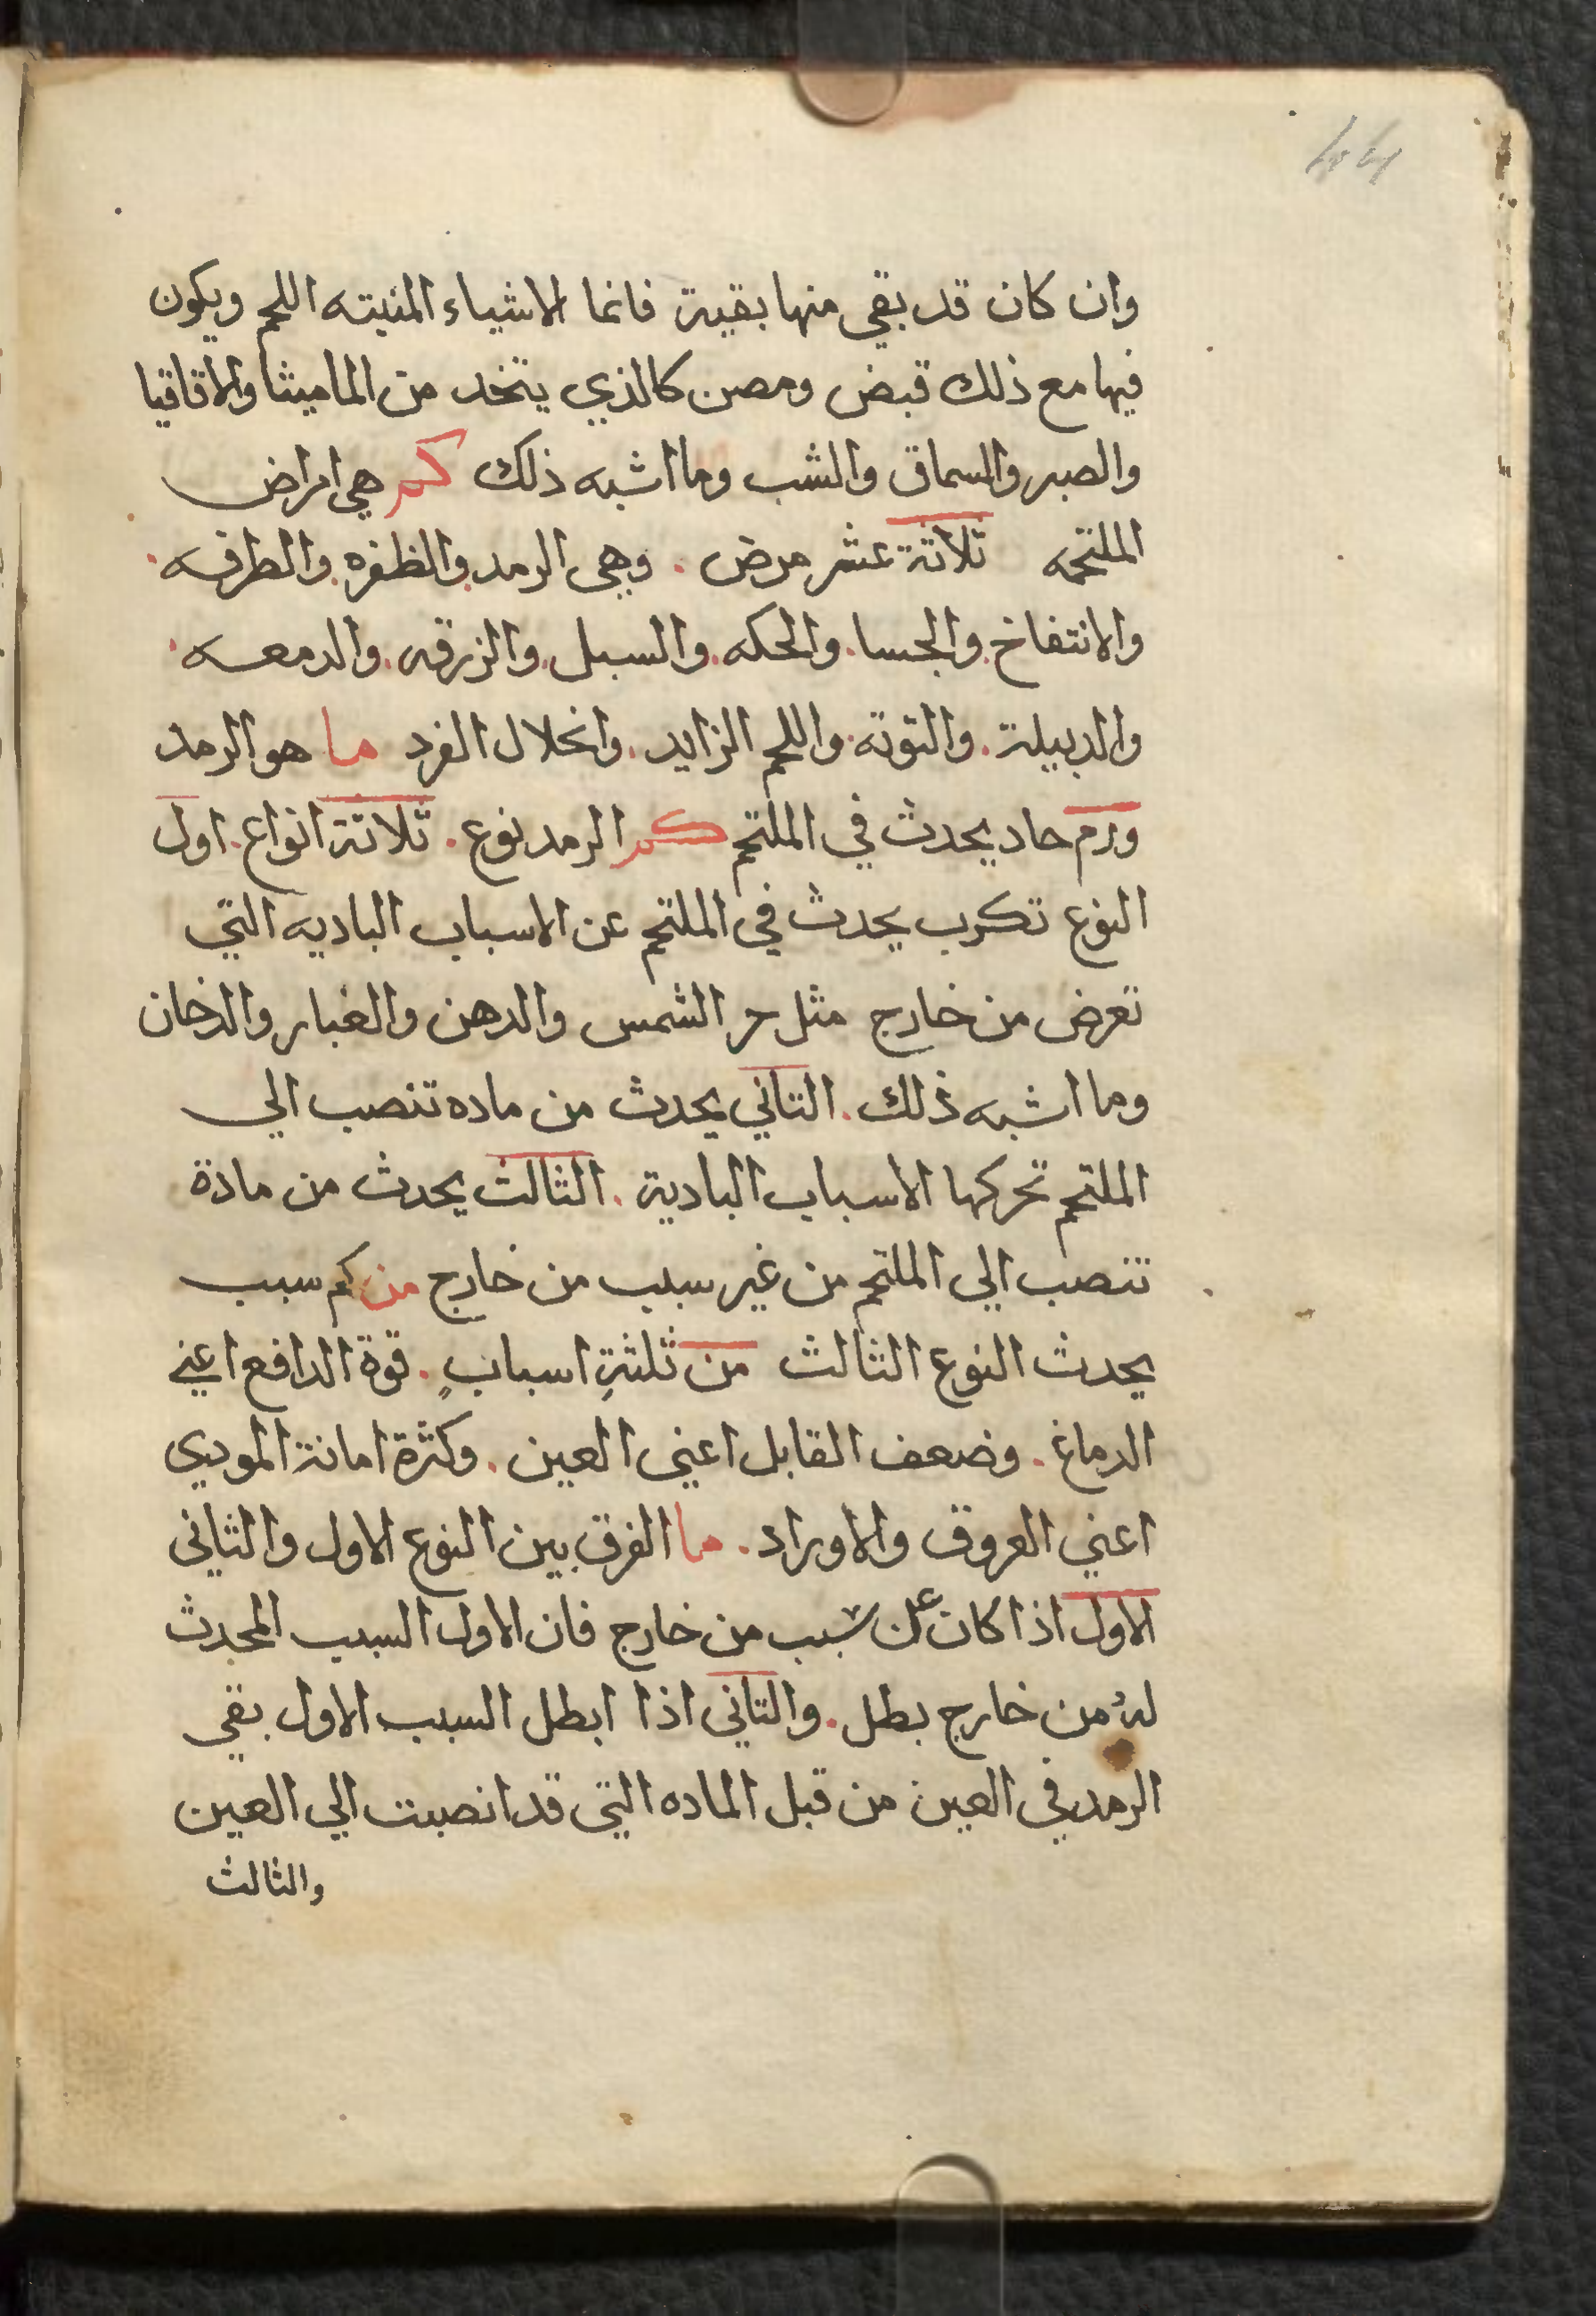 44
وان كان قد بقي منها بقية فانما الاشياء المنبته اللحم ويكون
فيها مع ذلك قبض ومصن كالذي يتخد من الماميثا والاقاقيا
والصبر والسماق والشب وما اشبه ذلك كم هي امراض
الملتحمه ثلاثة عشر مرض . وهي الرمد . والظفره . والطرفه .
والانتفاخ . والجسا . والحكه . والسبل . والزرقه . والدمعه .
والدبيلة . والتوتة . واللحم الزايد . وانحلال الفرد ما هو الرمد
ورم حاد يحدث في الملتحم كم الرمد نوع . ثلاثة انواع . اول
النوع تكرب يحدث في الملتحم عن الاسباب الباديه التي
تعرض من خارج مثل حر الشمس والدهن والغبار والدخان
وما اشبه ذلك . التاني يحدث من ماده تنصب الي
الملتحم تحركها الاسباب البادية . الثالث يحدث من مادة
تنصب الي الملتحم من غير سبب من خارج من كم سبب
يحدث النوع الثالث من ثلثةِ اسبابٍ . قوة الدافع اعني
الدماغ . وضعف القابل اعني العين . وكثرة امانة الموديي
اعني العروق والاوراد . ما الفرق بين النوع الاول والثاني
الاول اذا كان عن سبب من خارج فان الاول السبب المحدث
لهُ من خارج بطل . والتاني اذا ابطل السبب الاول بقي
الرمد في العين من قبل الماده التي قد انصبت الي العين
والثالث